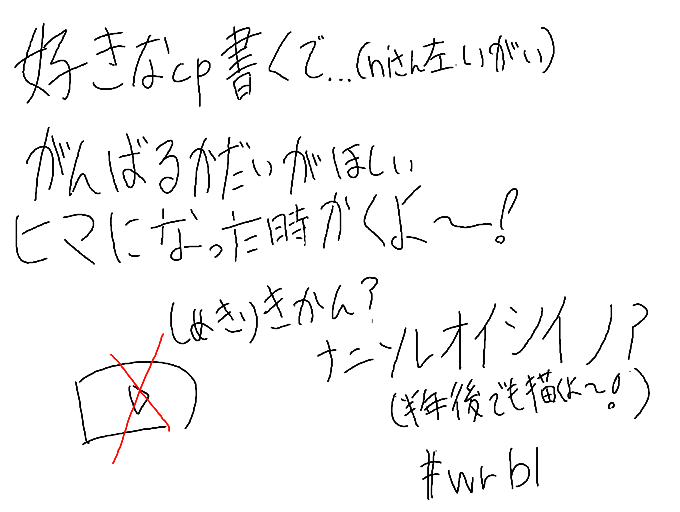 好きなcp書くで…(niさん左いがい)
がんばるかだいがほしい
ヒマになった時かくよ〜!
(〆きり)きかん?
ナニソレオイシイノ?
(半年後でも描くよ〜!)
#wrbl